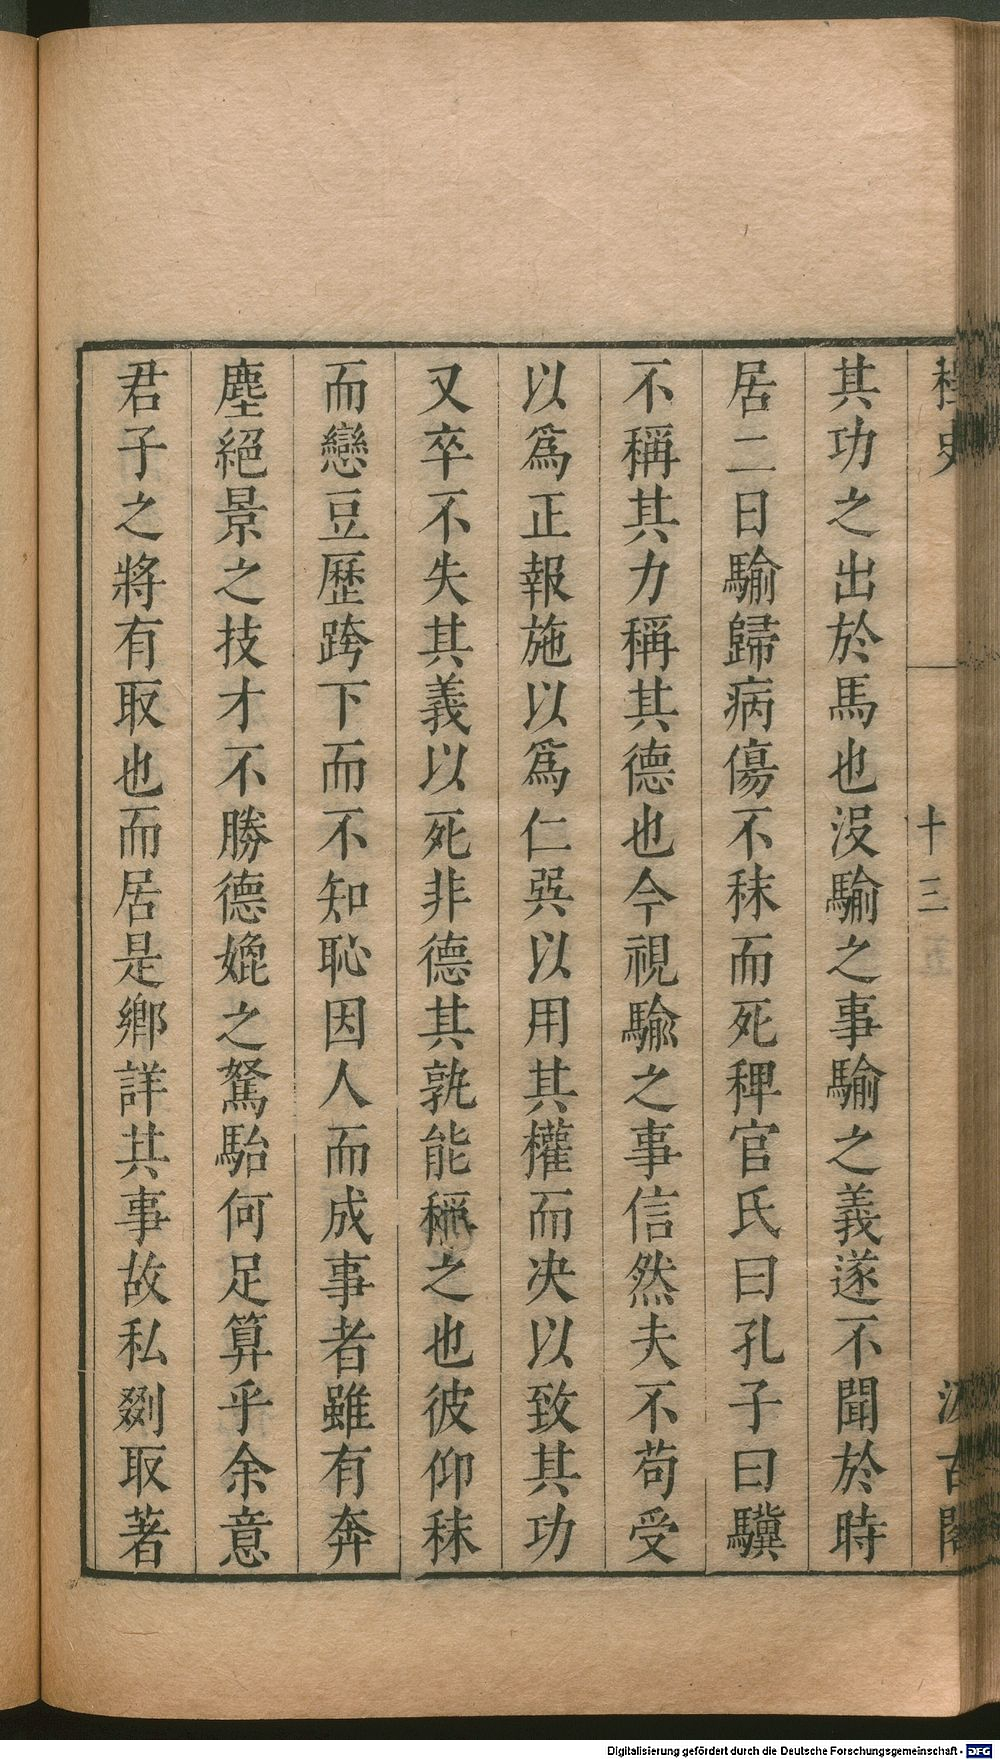 桯史
十三
汲古閣
其功之出於馬也沒騟之事騟之義遂不聞於時
居二日騟歸病傷不秣而死稗官氏曰孔子曰驥
不稱其力稱其德也今視騟之事信然夫不苟受
以爲正報施以爲仁巽以用其權而决以致其功
又卒不失其義以死非德其孰能稱之也彼仰秣
而戀豆歷跨下而不知恥因人而成事者雖有奔
塵絕景之技才不勝德媲之駑駘何足算乎余意
君子之將有取也而居是鄉詳其事故私剟取著
Digitalisierung gefördert durch die Deutsche Forschungsgemeinschaft - DFG